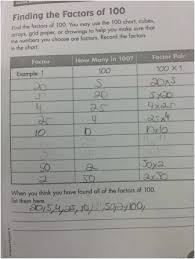 Finding the Factors of 100
Find the factors of 100. You may use the 100 chart, cubes,
arrays, grid paper, or drawings to help you make sure that
the numbers you choose are factors. Record the factors
in the chart.
Factor How Many in 100? Factor Pair
Example: 1 100 100 x 1
20 5 20x5
5 20 5x20
4 25 4x25
25 4 25x4
10 10 10x10
50 2 50x2
2 2x50
When you think you have found all of the factors of 100,
list them here.
20, 5, 4, 25, 10, 50, 2, 100,